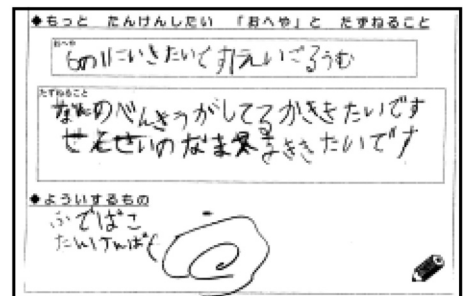 ◆もっと たんけんしたい 「おへや」と たずねること
おへや
6の1にいきたいです えいごるうむ
たずねること
なんのべんきょうがしてるかききたいです
せんせいのなまえききたいです
◆よういするもの
ふでばこ
たんけんば